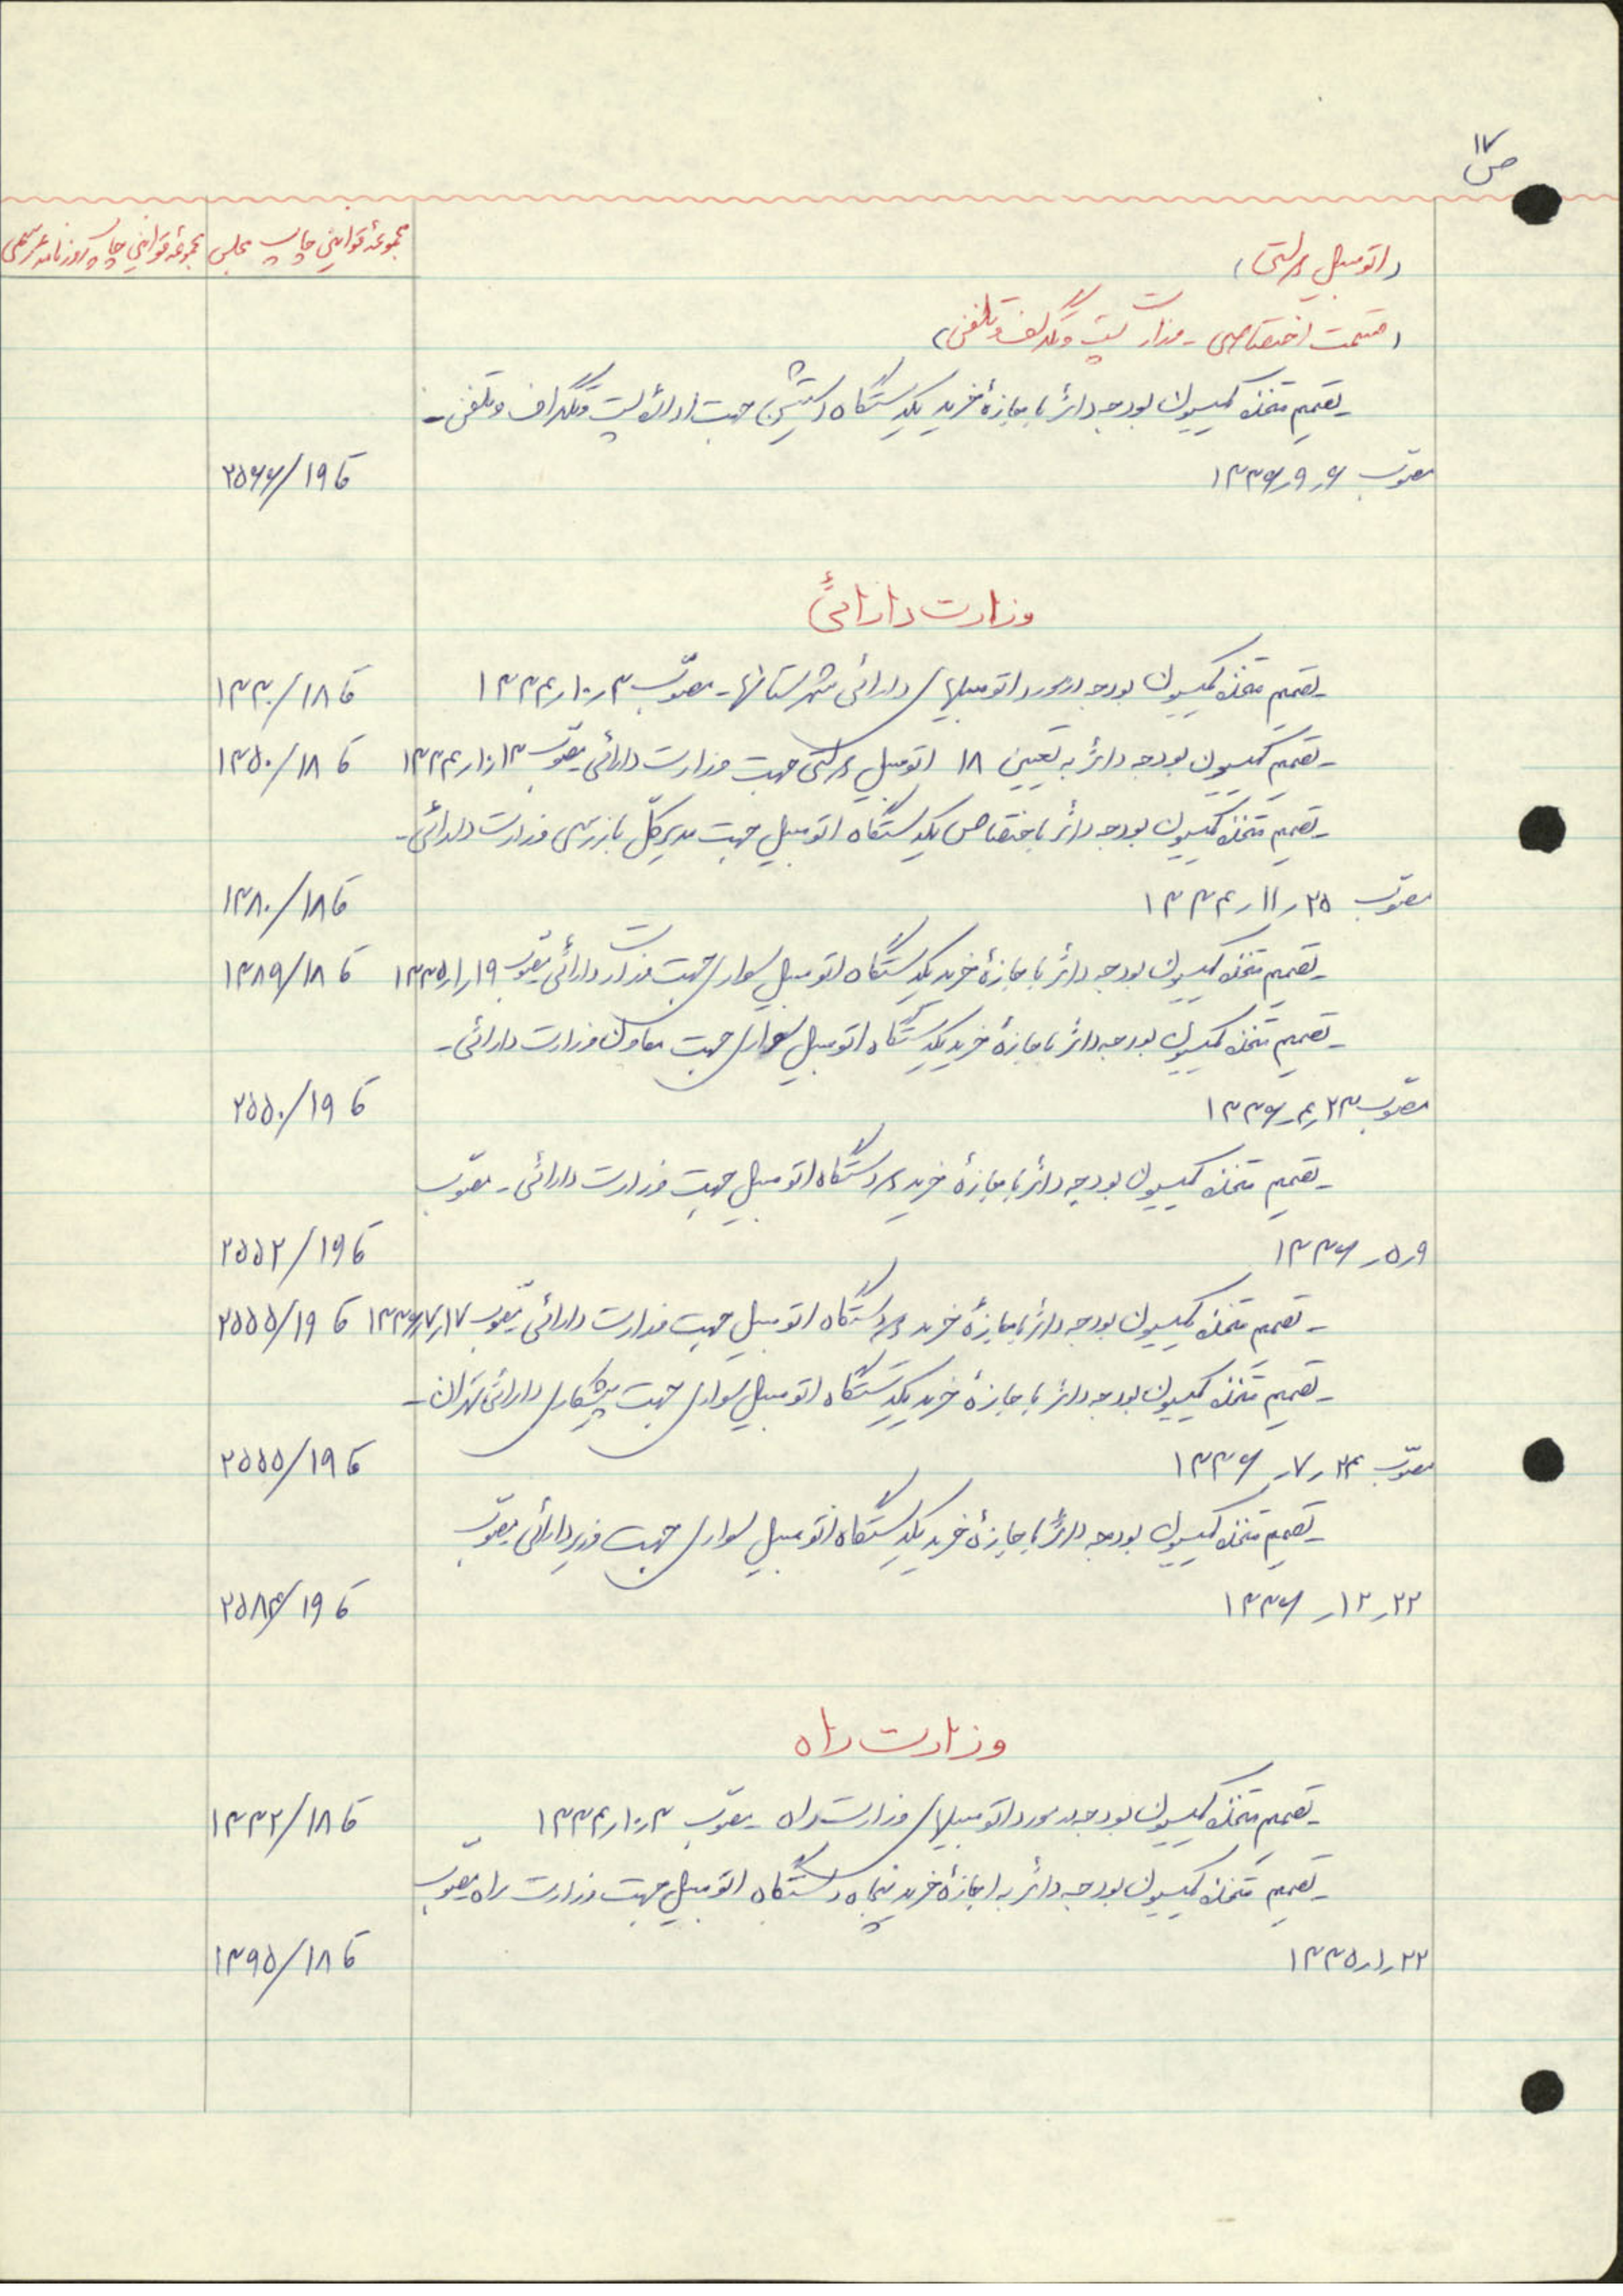 ص ۱۷
مجموعهٔ قوانین چاپ مجلس
مجموعهٔ قوانین چاپ روزنامه رسمی
(اتومبیل دولتی)
(قسمت اختصاصی - وزارت پست و تلگراف و تلفن)
- تصمیم متخذه کمیسیون بودجه دائر باجازهٔ خرید یکدستگاه استیشن جهت اداره پست و تلگراف و تلفن -
مصوّب ۶ر۹ر۱۳۳۶ ق۱۹/۲۵۶۶
وزارت دارائی
- تصمیم متخذه کمیسیون بودجه در مورد اتومبیلهای دارائی شهرستانها - مصوّب ۳ر۱۰ر۱۳۳۴ ق۱۸/۱۳۳۰
- تصمیم کمیسیون بودجه دائر به تعیین ۱۸ اتومبیل دولتی جهت وزارت دارائی مصوّب ۱۳ر۱۰ر۱۳۳۴ ق۱۸/۱۳۵۰
- تصمیم متخذه کمیسیون بودجه دائر باختصاص یکدستگاه اتومبیل جهت مدیر کلّ بازرسی وزارت دارائی -
مصوّب ۲۵ر۱۱ر۱۳۳۴ ق۱۸/۱۳۸۰
- تصمیم متخذه کمیسیون بودجه دائر باجازهٔ خرید یکدستگاه اتومبیل سواری جهت وزارت دارائی مصوّب ۱۹ر۱ر۱۳۳۵ ق۱۸/۱۳۸۹
- تصمیم متخذه کمیسیون بودجه دائر باجازهٔ خرید یکدستگاه اتومبیل سواری جهت معاون وزارت دارائی -
مصوّب ۲۳ر۴ر۱۳۳۶ ق۱۹/۲۵۵۰
- تصمیم متخذه کمیسیون بودجه دائر باجازهٔ خرید دودستگاه اتومبیل جهت وزارت دارائی - مصوّب
۹ر۵ر۱۳۳۶ ق۱۹/۲۵۵۲
- تصمیم متخذه کمیسیون بودجه دائر باجازهٔ خرید دودستگاه اتومبیل جهت وزارت دارائی مصوّب ۱۷ر۷ر۱۳۳۶ ق۱۹/۲۵۵۵
- تصمیم متخذه کمیسیون بودجه دائر باجازهٔ خرید یکدستگاه اتومبیل سواری جهت پیشکاری دارائی تهران -
مصوّب ۲۴ر۷ر۱۳۳۶ ق۱۹/۲۵۵۵
- تصمیم متخذه کمیسیون بودجه دائر باجازهٔ خرید یکدستگاه اتومبیل سواری جهت وزیر دارائی مصوّب
۲۲ر۱۲ر۱۳۳۶ ق۱۹/۲۵۸۴
وزارت راه
- تصمیم متخذه کمیسیون بودجه در مورد اتومبیلهای وزارت راه - مصوّب ۳ر۱۰ر۱۳۳۴ ق۱۸/۱۳۳۲
- تصمیم متخذه کمیسیون بودجه دائر به اجازهٔ خرید پنجاه دستگاه اتومبیل جهت وزارت راه مصوّب
۲۲ر۱ر۱۳۳۵ ق۱۸/۱۳۹۵